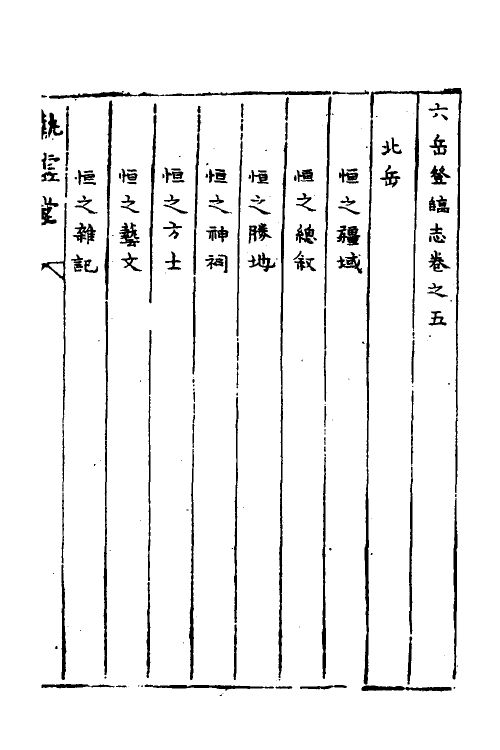 六岳登臨志卷之五
北岳
恒之疆域
恒之總叙
恒之勝地
恒之神祠
恒之方士
恒之藝文
恒之雜記